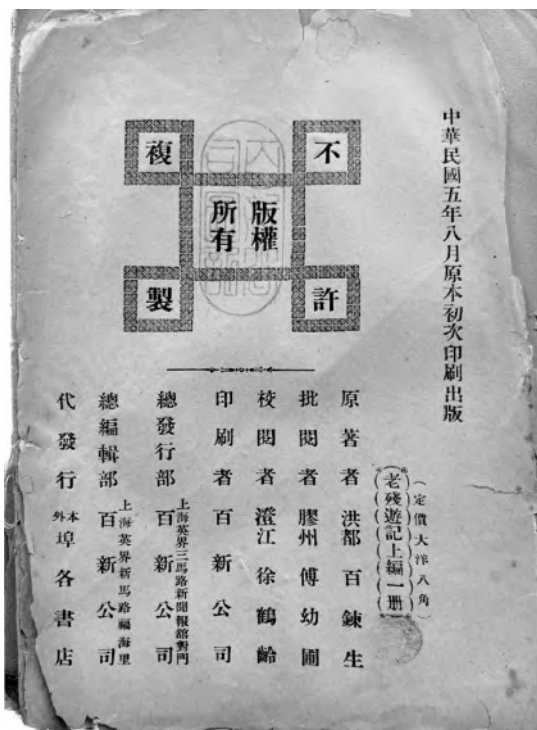 中華民國五年八月原本初次印刷出版
不許複製
版權所有
(定價大洋八角)
老殘遊記上編一册
原著者 洪都百鍊生
批閱者 膠州傅幼圃
校閱者 澄江徐鶴齡
印刷者 百新公司
總發行部 上海英界三馬路新聞報館對門 百新公司
總編輯部 上海英界新馬路福海里 百新公司
代發行 本外埠各書店